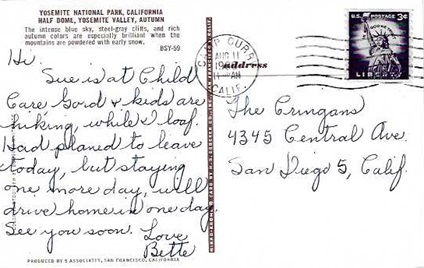 YOSEMITE NATIONAL PARK, CALIFORNIA
HALF DOME, YOSEMITE VALLEY, AUTUMN
The intense blue sky, steel-gray cliffs, and rich
autumn colors are especially brilliant when the
mountains are powdered with early snow.
BSY-59
Hi.
Sue is at Child
Care Gord & kids are
hiking, while I loaf.
Had planed to leave
today, but staying
one more day, will
drive home in one day.
See you soon. Love
Bette
PRODUCED BY S ASSOCIATES, SAN FRANCISCO, CALIFORNIA
CAMP CURRY
AUG 11
11 AM
CALIF.
Address
U.S. POSTAGE 3¢
LIBERTY
The Cringans
4345 Central Ave.
San Diego 5, Calif.